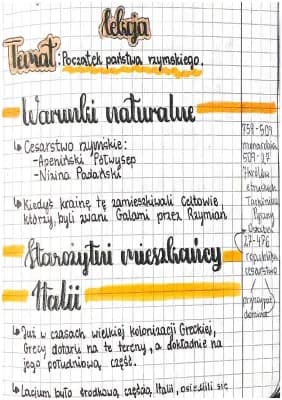 Lekcja
Temat: Początek państwa rzymskiego.
Warunki naturalne
↳ Cesarstwo rzymskie:
-Apeniński Półwysep
-Nizina Padańska
↳ Kiedyś krainę tę zamieszkiwali Celtowie
którzy, byli zwani Galami przez Rzymian
Starożytni mieszkańcy
Italii
↳ Już w czasach wielkiej kolonizacji Greckiej,
Grecy dotarli na te tereny, a dokładnie na
jego południową część.
↳ Lacjum było środkową częścią Italii, osiedlili się
753-509
monarchia
509-27
7 królów
etruskich
Pyszny
27-476
republika
cesarstwo
pryncypat
dominat